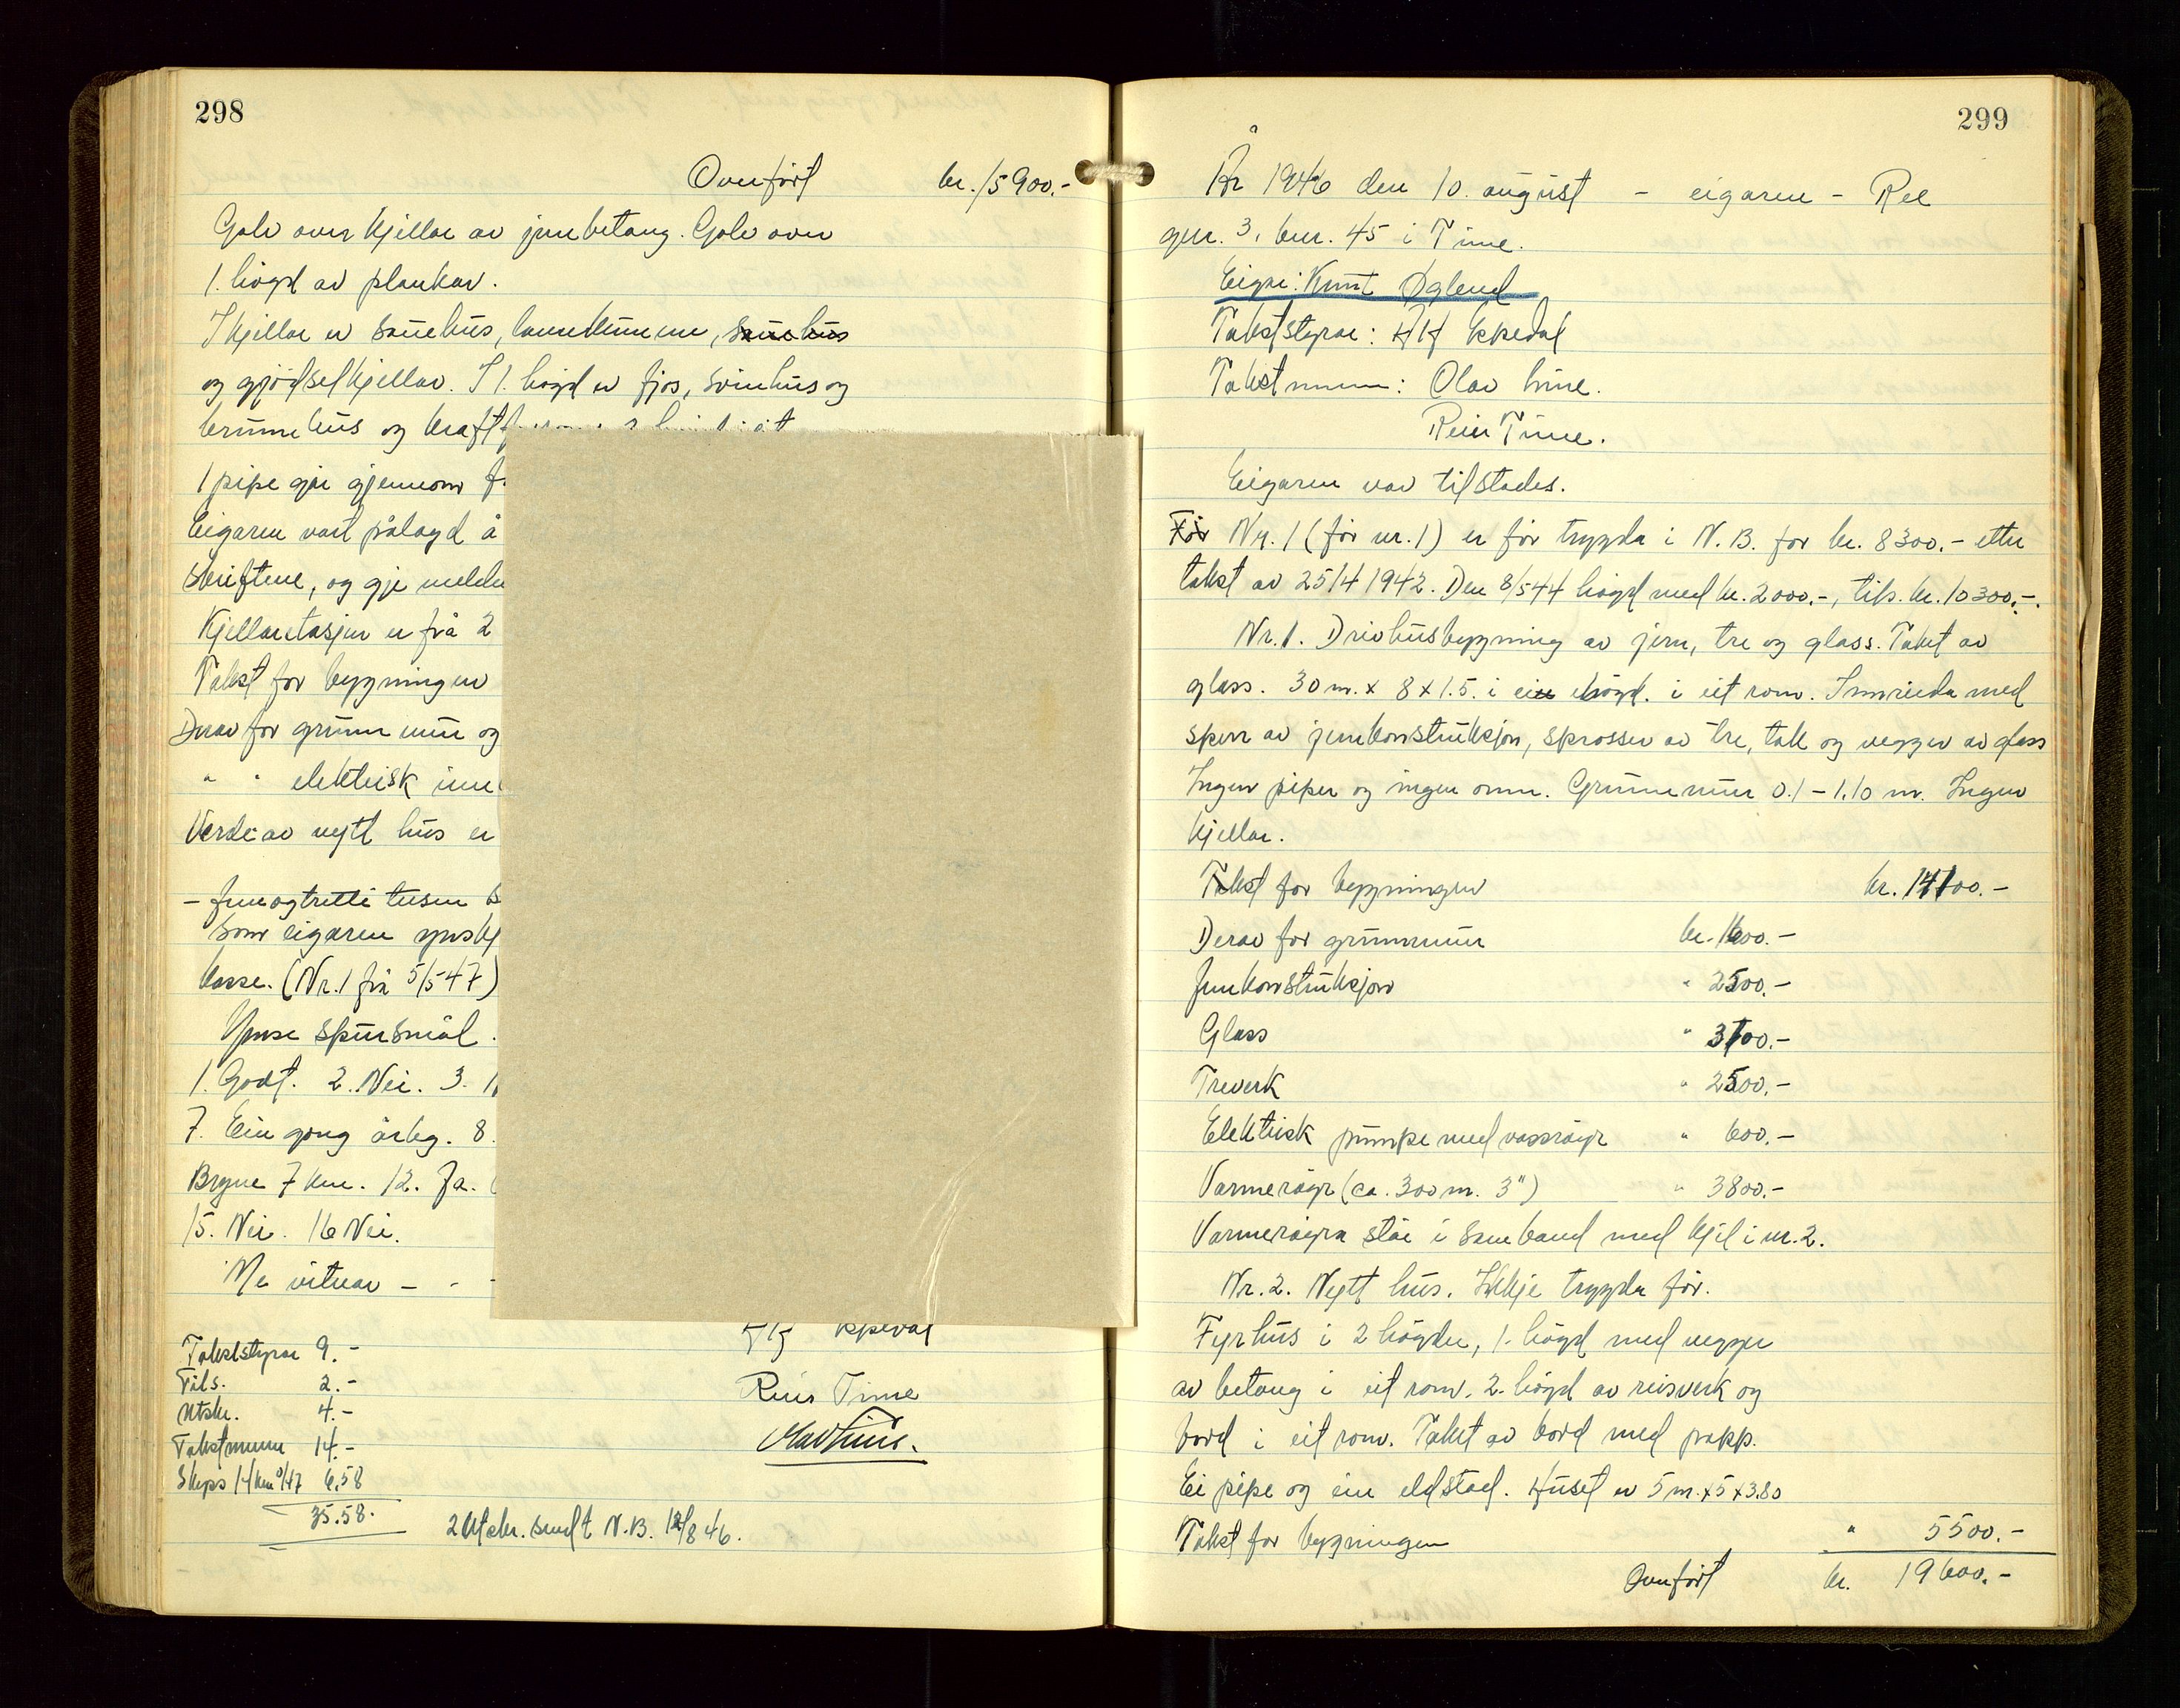 298
Overført kr. 15900.-
Golv over kjellar av jernbetong. Golv over
1. høgd av plankar.
I kjellar er sauehus, landkumme, sauehus
og gjødselkjellar. I 1. høgd er fjos, svinhus og
brunnhus og kraftf
1 pipe går gjennom f
Eigaren vart pålagd å
skriftene, og gje meldi
Kjellaretasjen er frå 2
Takst for bygningen
Derav for grunnmur og
" " elektrisk inn
Verde av nytt hus er
- femogtretti tusen
som eigaren ynskj
kasse. (Nr. 1 frå 5/5-47)
Ymse spursmål.
1. Godt. 2. Nei. 3.
7. Ein gong årleg. 8.
Bryne 7 km. 12. Ja.
15. Nei. 16 Nei.
Me vitnar - - -
Takststyrar 9.-
Tils. 2.-
Utskr. 4.-
Takstmenn 14.-
Skyss 14 km 0/47 6,58
35.58.
Reier Time
2 Utskr. sendt N.B. 12/8 46.
299
År 1946 den 10. august - eigaren - Ree
gnr. 3, bnr. 45 i Time.
Eigar: Knut Øglend
Takststyrar: Kpedal
Takstmenn: Olav Line.
Reier Time.
Eigaren var tilstades.
Før Nr. 1 (før nr. 1) er før trygda i N.B. for kr. 8300.- etter
takst av 25/4 1942. Den 8/5 44 høgd med kr. 2000.-, tils. kr. 10300.-.
Nr. 1. Drivhusbygning av jern, tre og glass. Taket av
glass. 30 m. x 8 x 1.5. i ein høgd. i eit rom. Innreida med
sperr av jernkonstruksjon, sprosser av tre, tak og vegger av glass
Ingen piper og ingen omn. Grunnmur 0.1 - 1.10 m. Ingen
kjellar.
Takst for bygningen kr. 14100.-
Derav for grunnmur kr. 1600.-
Jernkonstruksjon " 2500.-
Glass " 3100.-
Treverk " 2500.-
Elektrisk pumpe med vassrøyr " 600.-
Varmerøyr (ca. 300 m. 3") " 3800.-
Varmerøyra står i samband med kjel i nr. 2.
Nr. 2. Nytt hus. Ikkje trygda før.
Fyrhus i 2 høgder, 1. høgd med vegger
av betong i eit rom. 2. høgd av reisverk og
bord i eit rom. Taket av bord med papp.
Ei pipe og ein eldstad. Huset er 5 m. x 5 x 3.80
Takst for bygningen " 5500.-
Overført kr. 19600.-